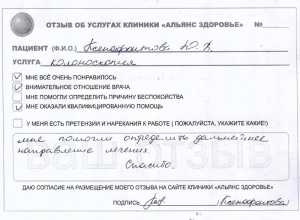 ОТЗЫВ ОБ УСЛУГАХ КЛИНИКИ «АЛЬЯНС ЗДОРОВЬЕ» №
ПАЦИЕНТ (Ф.И.О.) Ксенофонтова Ю.
УСЛУГА колоноскопия
МНЕ ВСЁ ОЧЕНЬ ПОНРАВИЛОСЬ
ВНИМАТЕЛЬНОЕ ОТНОШЕНИЕ ВРАЧА
МНЕ ПОМОГЛИ ОПРЕДЕЛИТЬ ПРИЧИНУ БЕСПОКОЙСТВА
МНЕ ОКАЗАЛИ КВАЛИФИЦИРОВАННУЮ ПОМОЩЬ
У МЕНЯ ЕСТЬ ПРЕТЕНЗИИ И НАРЕКАНИЯ К РАБОТЕ ( ПОЖАЛУЙСТА, УКАЖИТЕ КАКИЕ!)
мне помогли определить дальнейшее
направление лечения.
Спасибо.
ДАЮ СОГЛАСИЕ НА РАЗМЕЩЕНИЕ МОЕГО ОТЗЫВА НА САЙТЕ КЛИНИКИ «АЛЬЯНС ЗДОРОВЬЕ»
ПОДПИСЬ